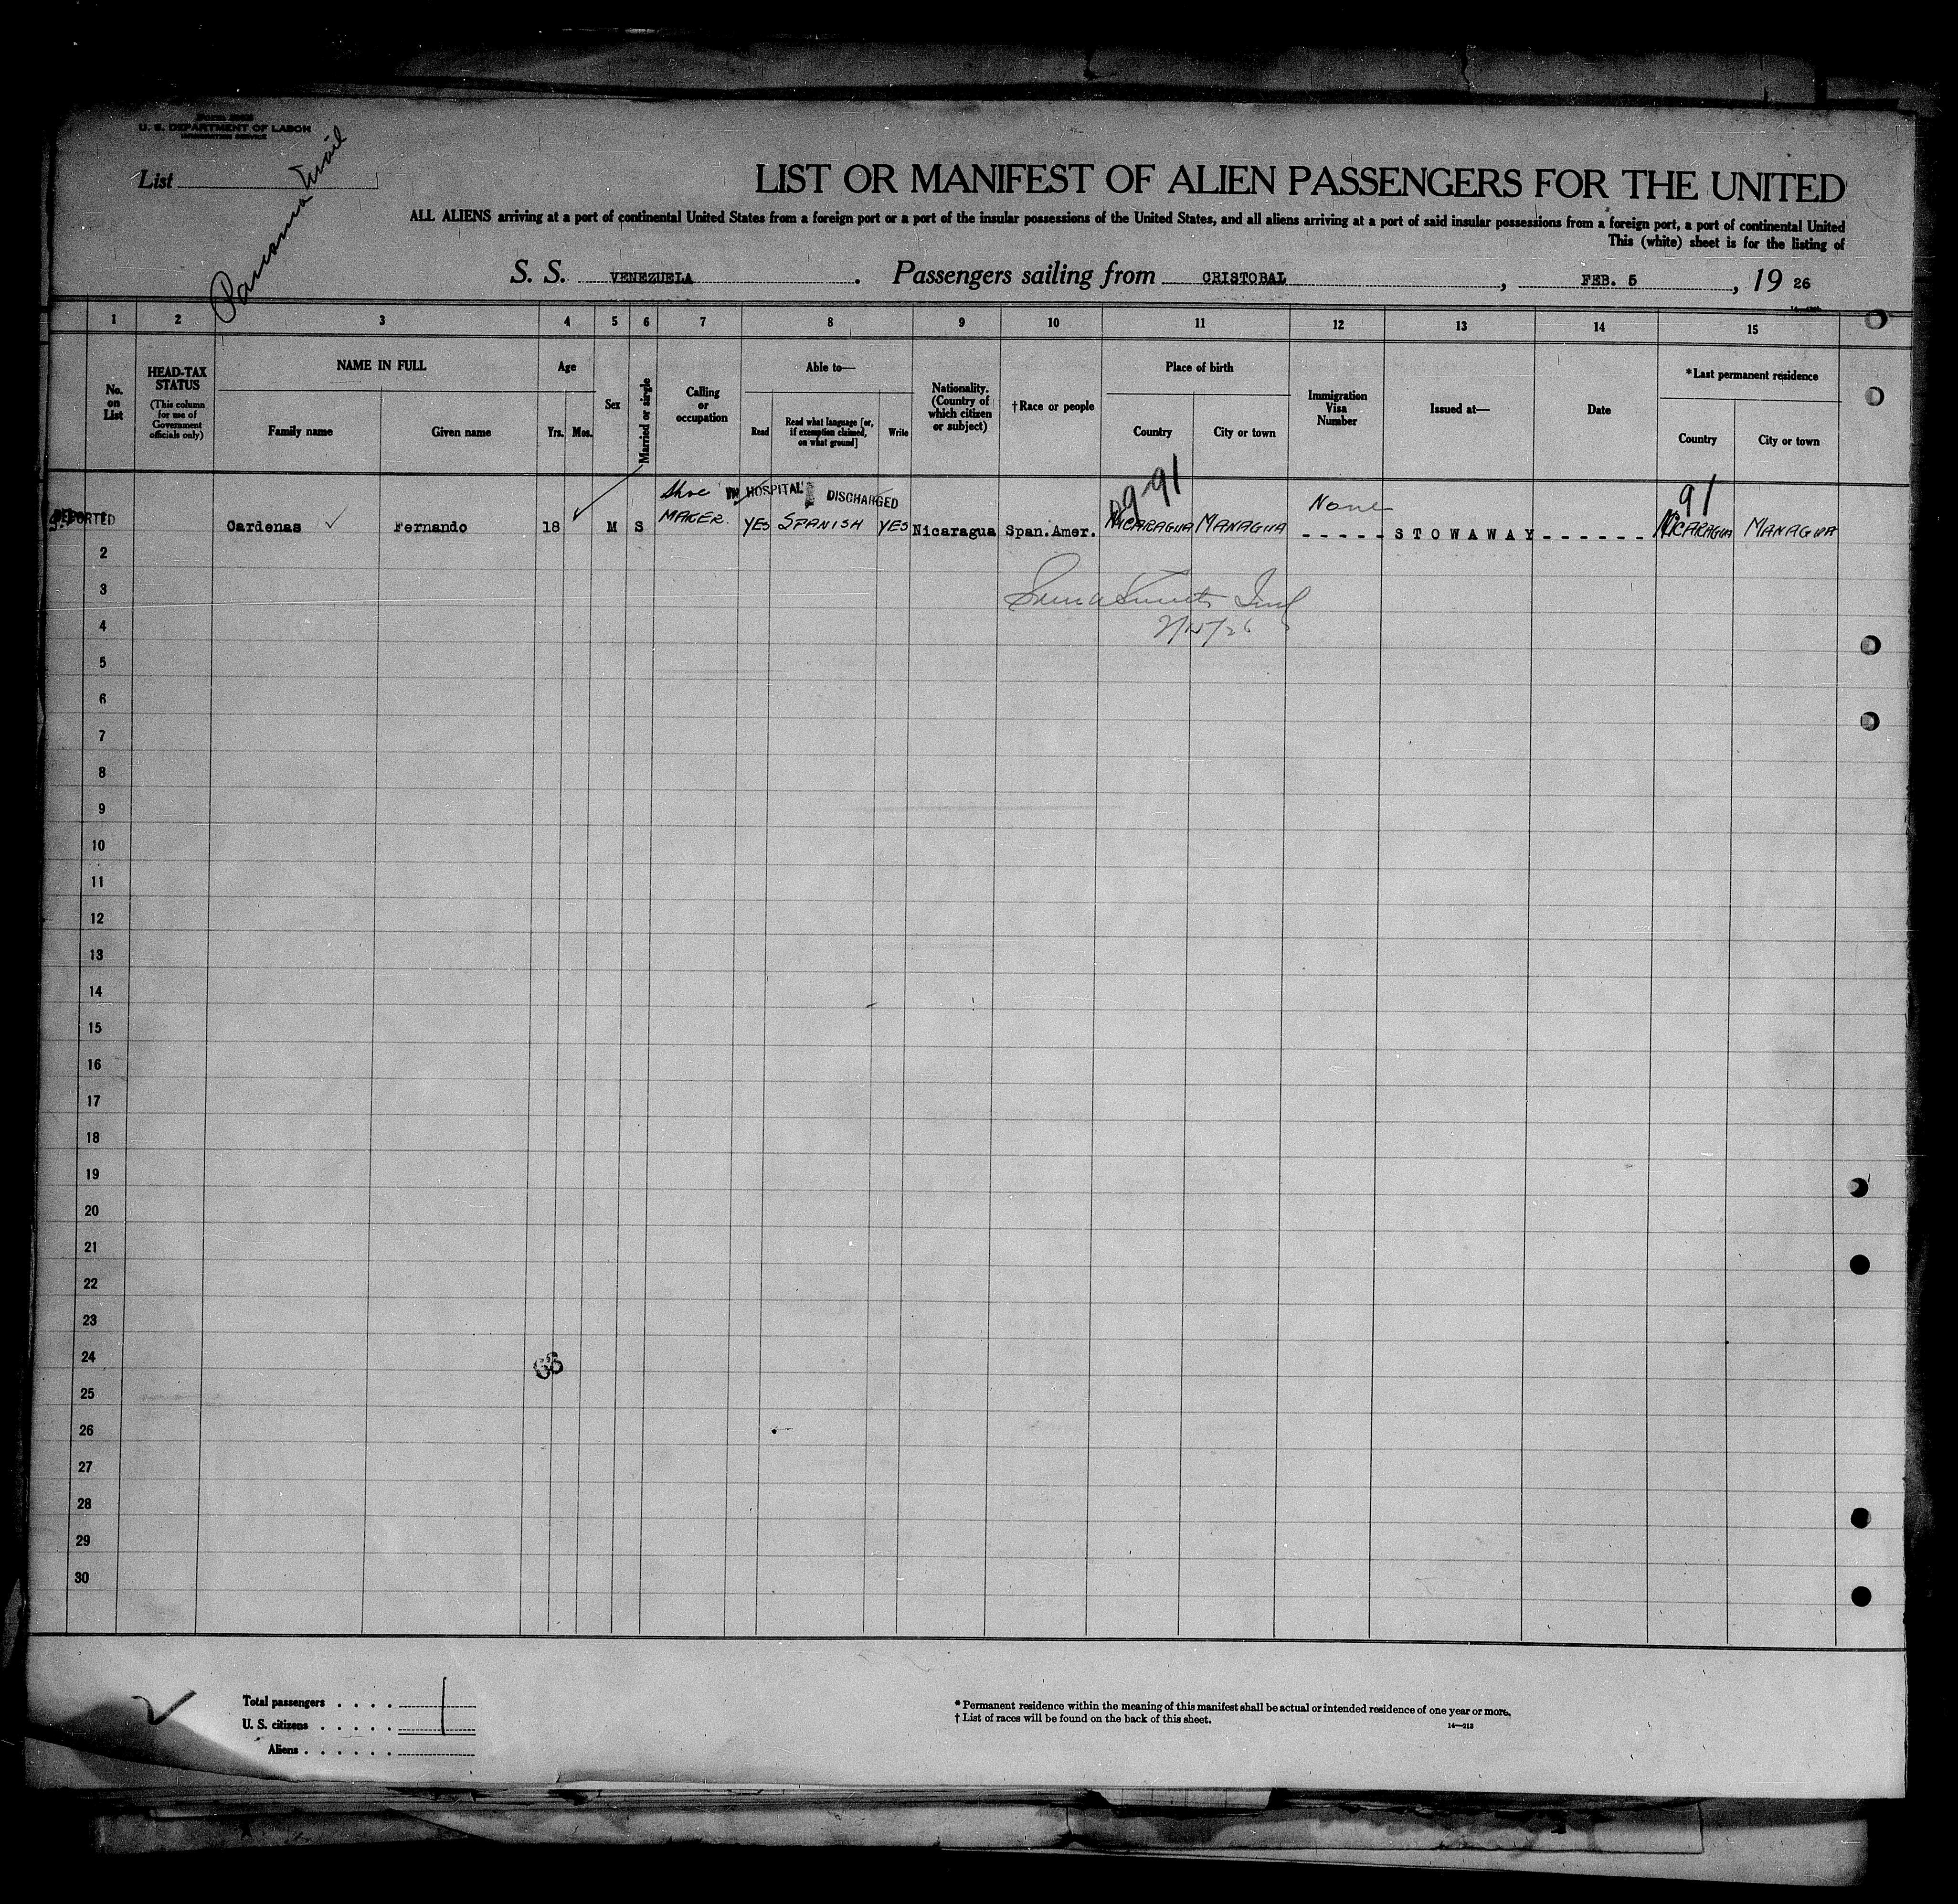 U. S. DEPARTMENT OF LABOR
IMMIGRATION SERVICE
List
Panama Mail
LIST OR MANIFEST OF ALIEN PASSENGERS FOR THE UNITED
ALL ALIENS arriving at a port of continental United States from a foreign port or a port of the insular possessions of the United States, and all aliens arriving at a port of said insular possessions from a foreign port, a port of continental United
This (white) sheet is for the listing of
S. S. VENEZUELA . Passengers sailing from CRISTOBAL , FEB. 5 , 19 26
1 2 3 4 5 6 7 8 9 10 11 12 13 14 15
No. on List
HEAD-TAX STATUS
(This column for use of Government officials only)
NAME IN FULL
Family name
Given name
Age
Yrs. Mos.
Sex
Married or single
Calling or occupation
Able to—
Read
Read what language [or, if exemption claimed, on what ground]
Write
Nationality. (Country of which citizen or subject)
†Race or people
Place of birth
Country
City or town
Immigration Visa Number
Issued at—
Date
*Last permanent residence
Country
City or town
IN HOSPITAL DISCHARGED
91
DEPORTED Cardenas Fernando 18 M S Shoe MAKER YES SPANISH YES Nicaragua Span.Amer. NICARAGUA MANAGUA None -----STOWAWAY------ NICARAGUA MANAGUA
2
3
4
5
6
7
8
9
10
11
12
13
14
15
16
17
18
19
20
21
22
23
24
25
26
27
28
29
30
Total passengers . . . .
U. S. citizens . . . . .
Aliens . . . . . .
* Permanent residence within the meaning of this manifest shall be actual or intended residence of one year or more.
† List of races will be found on the back of this sheet.
14—213